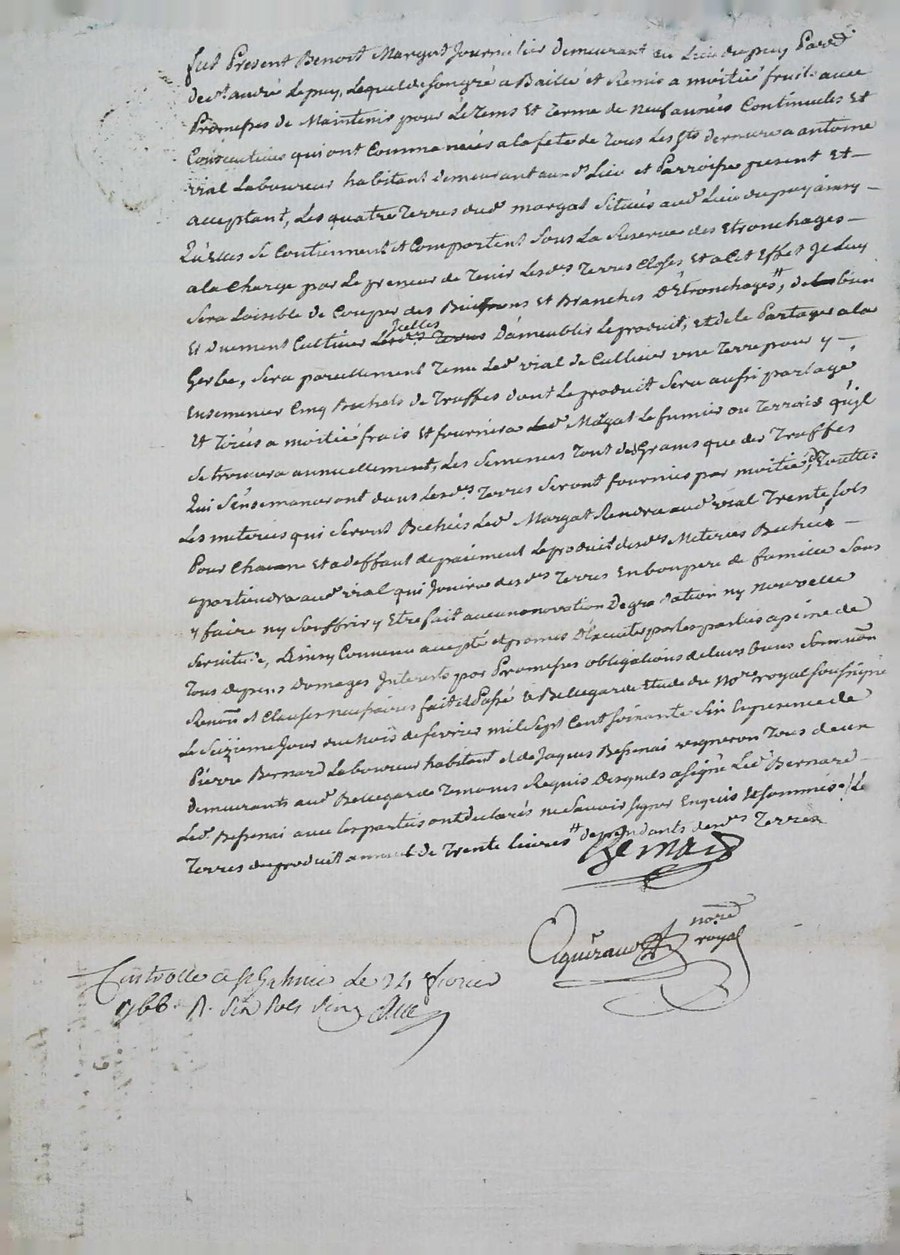 fut Present Benoit Margat Journalier demeurant au Lieu du puy Paroẽ
de St. andré Le puy, Lequel de son gré a Baillé et Remis a moitié fruits avec
Promesses de Maintenir pour Le tems Et terme de Neuf années Continuelles Et
Consecutives qui ont Commancées a la fete de Tous Les Sts derniere a antoine
vial Laboureur habitant demeurant aud. Lieu et Parroisse present Et
acceptant, Les quatre Terres dud. margat Situées aud. Lieu du puy ainsy
quelles Se Contiennent et Comportent Sous La Reserve des Etronchages
a la Charge par Le preneur de Tenir Lesdes. Terres Closes Et a Cet Effet Il Luy
Sera Loisible de Couper des Buissons Et Branches D'Etronchages, de bien
Et duement Cultiver Jcelles Lesdes. Terres D'ameublir Le produit, Et de Le Partager a la
Gerbe, Sera pareillement Tenu Led. vial de Cultiver une Terre pour y
Ensemencer Cinq Bichets de Truffes dont Le produit Sera aussi partagé
Et Tirés a moitié frais Et fournira Led. Margat Le fumier ou Terrois qu'jl
Se trouvera annuellement, Les Semences Tant des Grains que des Truffes
qui S'ensemanceront dans Lesdes. Terres Seront fournies par moitié, de Toutes
Les meteries qui Seront Bechées Led. Margat Rendra aud. vial Trente Sols
Pour Chacune Et a deffaut de paiement Le produit desdes. Meteries Bechées
apartiendra aud. vial qui Jouira desdes. Terres En bon pere de famille Sans
y faire ny Souffrir y Etre fait aucune novation Degradation ny nouvelle
Servitude, Ainsy Convenu accepté et promis D'Executer par les parties a peine de
Tous depens Domages Interets par Promesses obligations de leurs biens Soumõn
Renõn et Clauses necessaires fait et Passé a Bellegarde Etude du Nore. royal Soussigné
Le Seizieme Jour du Mois de fevrier mil Sept Cent Soixante Six En presence de
Pierre Bernard Laboureur habitant et de Jaques Bessenai vigneron Tous deux
demeurants aud. Bellegarde Temoins Requis Desquels a Signé Led. Bernard
Led. Bessenai avec les parties ont declarés ne Savoir Signer Enquis Et Sommés
Terres du produit annuel de Trente Livres dependants desdes. Terres
Bernard
nore.
royal
Controllé a St Galmier le 24 fevrier
1766. R. Six Sols Six